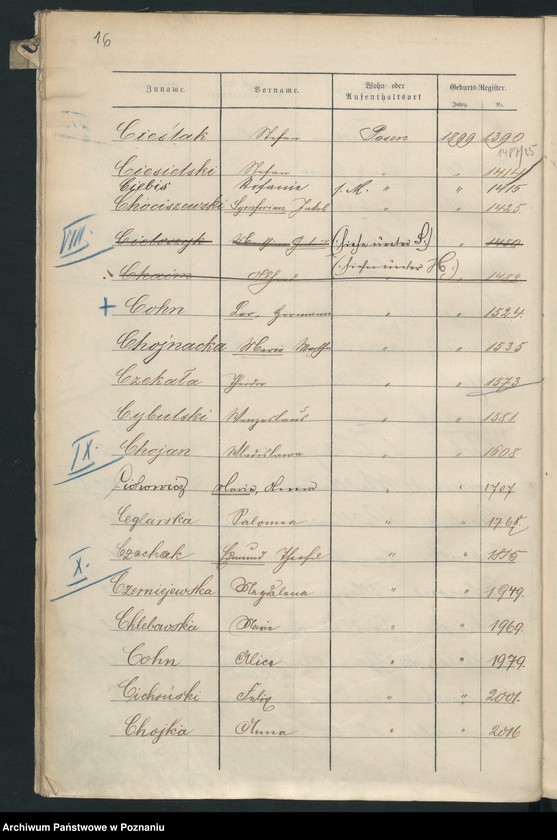 16
Zuname. Vorname. Wohn- oder Aufenthaltsort Geburts-Register.
Jahrg. Nr.
Cieślak Stefan Posen 1899 1390
1487/25
Ciesielski Stefan " " 1414
Ciebis Stefanie s. M. " " 1415
Chociszewski Symforian Jakob " " 1425
VIII. (siehe unter S.) " 1450
Chaim (siehe unter H.)
+ Cohn Leo, Hermann " " 1524
Chojnacka Maria Martha " " 1535
Czekała Theodor " " 1573
Cybulski Wenzeslaus " " 1581
IX. Chojan Wladislawa " " 1608
Cichowicz Maria, Anna " " 1707
Ceglarska Salomea " " 1768
Czachak Edmund Theofil " " 1815
X. Czerniejewska Magdalena " " 1949.
Chlebowska Maria " " 1969.
Cohn Alice " " 1979.
Cichoński Felix " " 2001.
Chojka Anna " " 2016
Archiwum Państwowe w Poznaniu